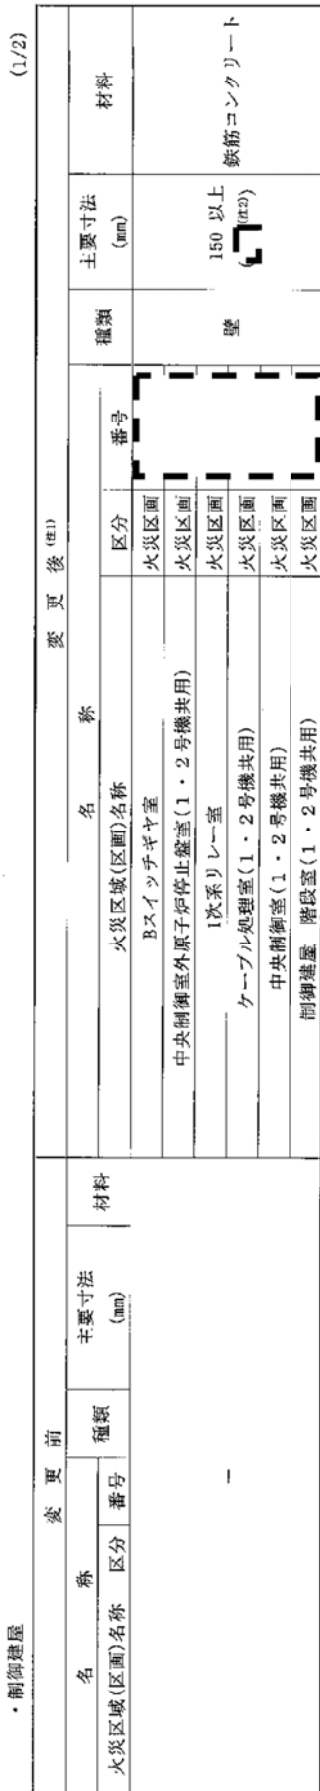 ・制御建屋
(1/2)
変更前
変更後(注1)
名称
種類
主要寸法
(mm)
材料
名称
種類
主要寸法
(mm)
材料
火災区域(区画)名称
区分
番号
火災区域(区画)名称
区分
番号
－
Bスイッチギヤ室
火災区画
中央制御室外原子炉停止盤室(1・2号機共用)
火災区画
1次系リレー室
火災区画
ケーブル処理室(1・2号機共用)
火災区画
中央制御室(1・2号機共用)
火災区画
制御建屋 階段室(1・2号機共用)
火災区画
壁
150 以上
( (注2))
鉄筋コンクリート